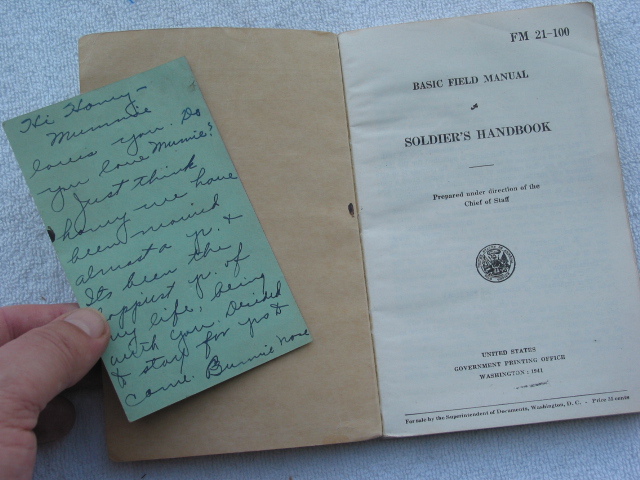 Hi Honey -
Mummie
loves you. Do
you love Mumie?
Just think
honey we have
been married
almost a yr. &
Its been the
happiest yr. of
my life, being
with you. Decided
to stay for yrs to
come.
FM 21-100
BASIC FIELD MANUAL
SOLDIER'S HANDBOOK
Prepared under direction of the
Chief of Staff
UNITED STATES
GOVERNMENT PRINTING OFFICE
WASHINGTON : 1941
For sale by the Superintendent of Documents, Washington, D. C. - Price 35 cents